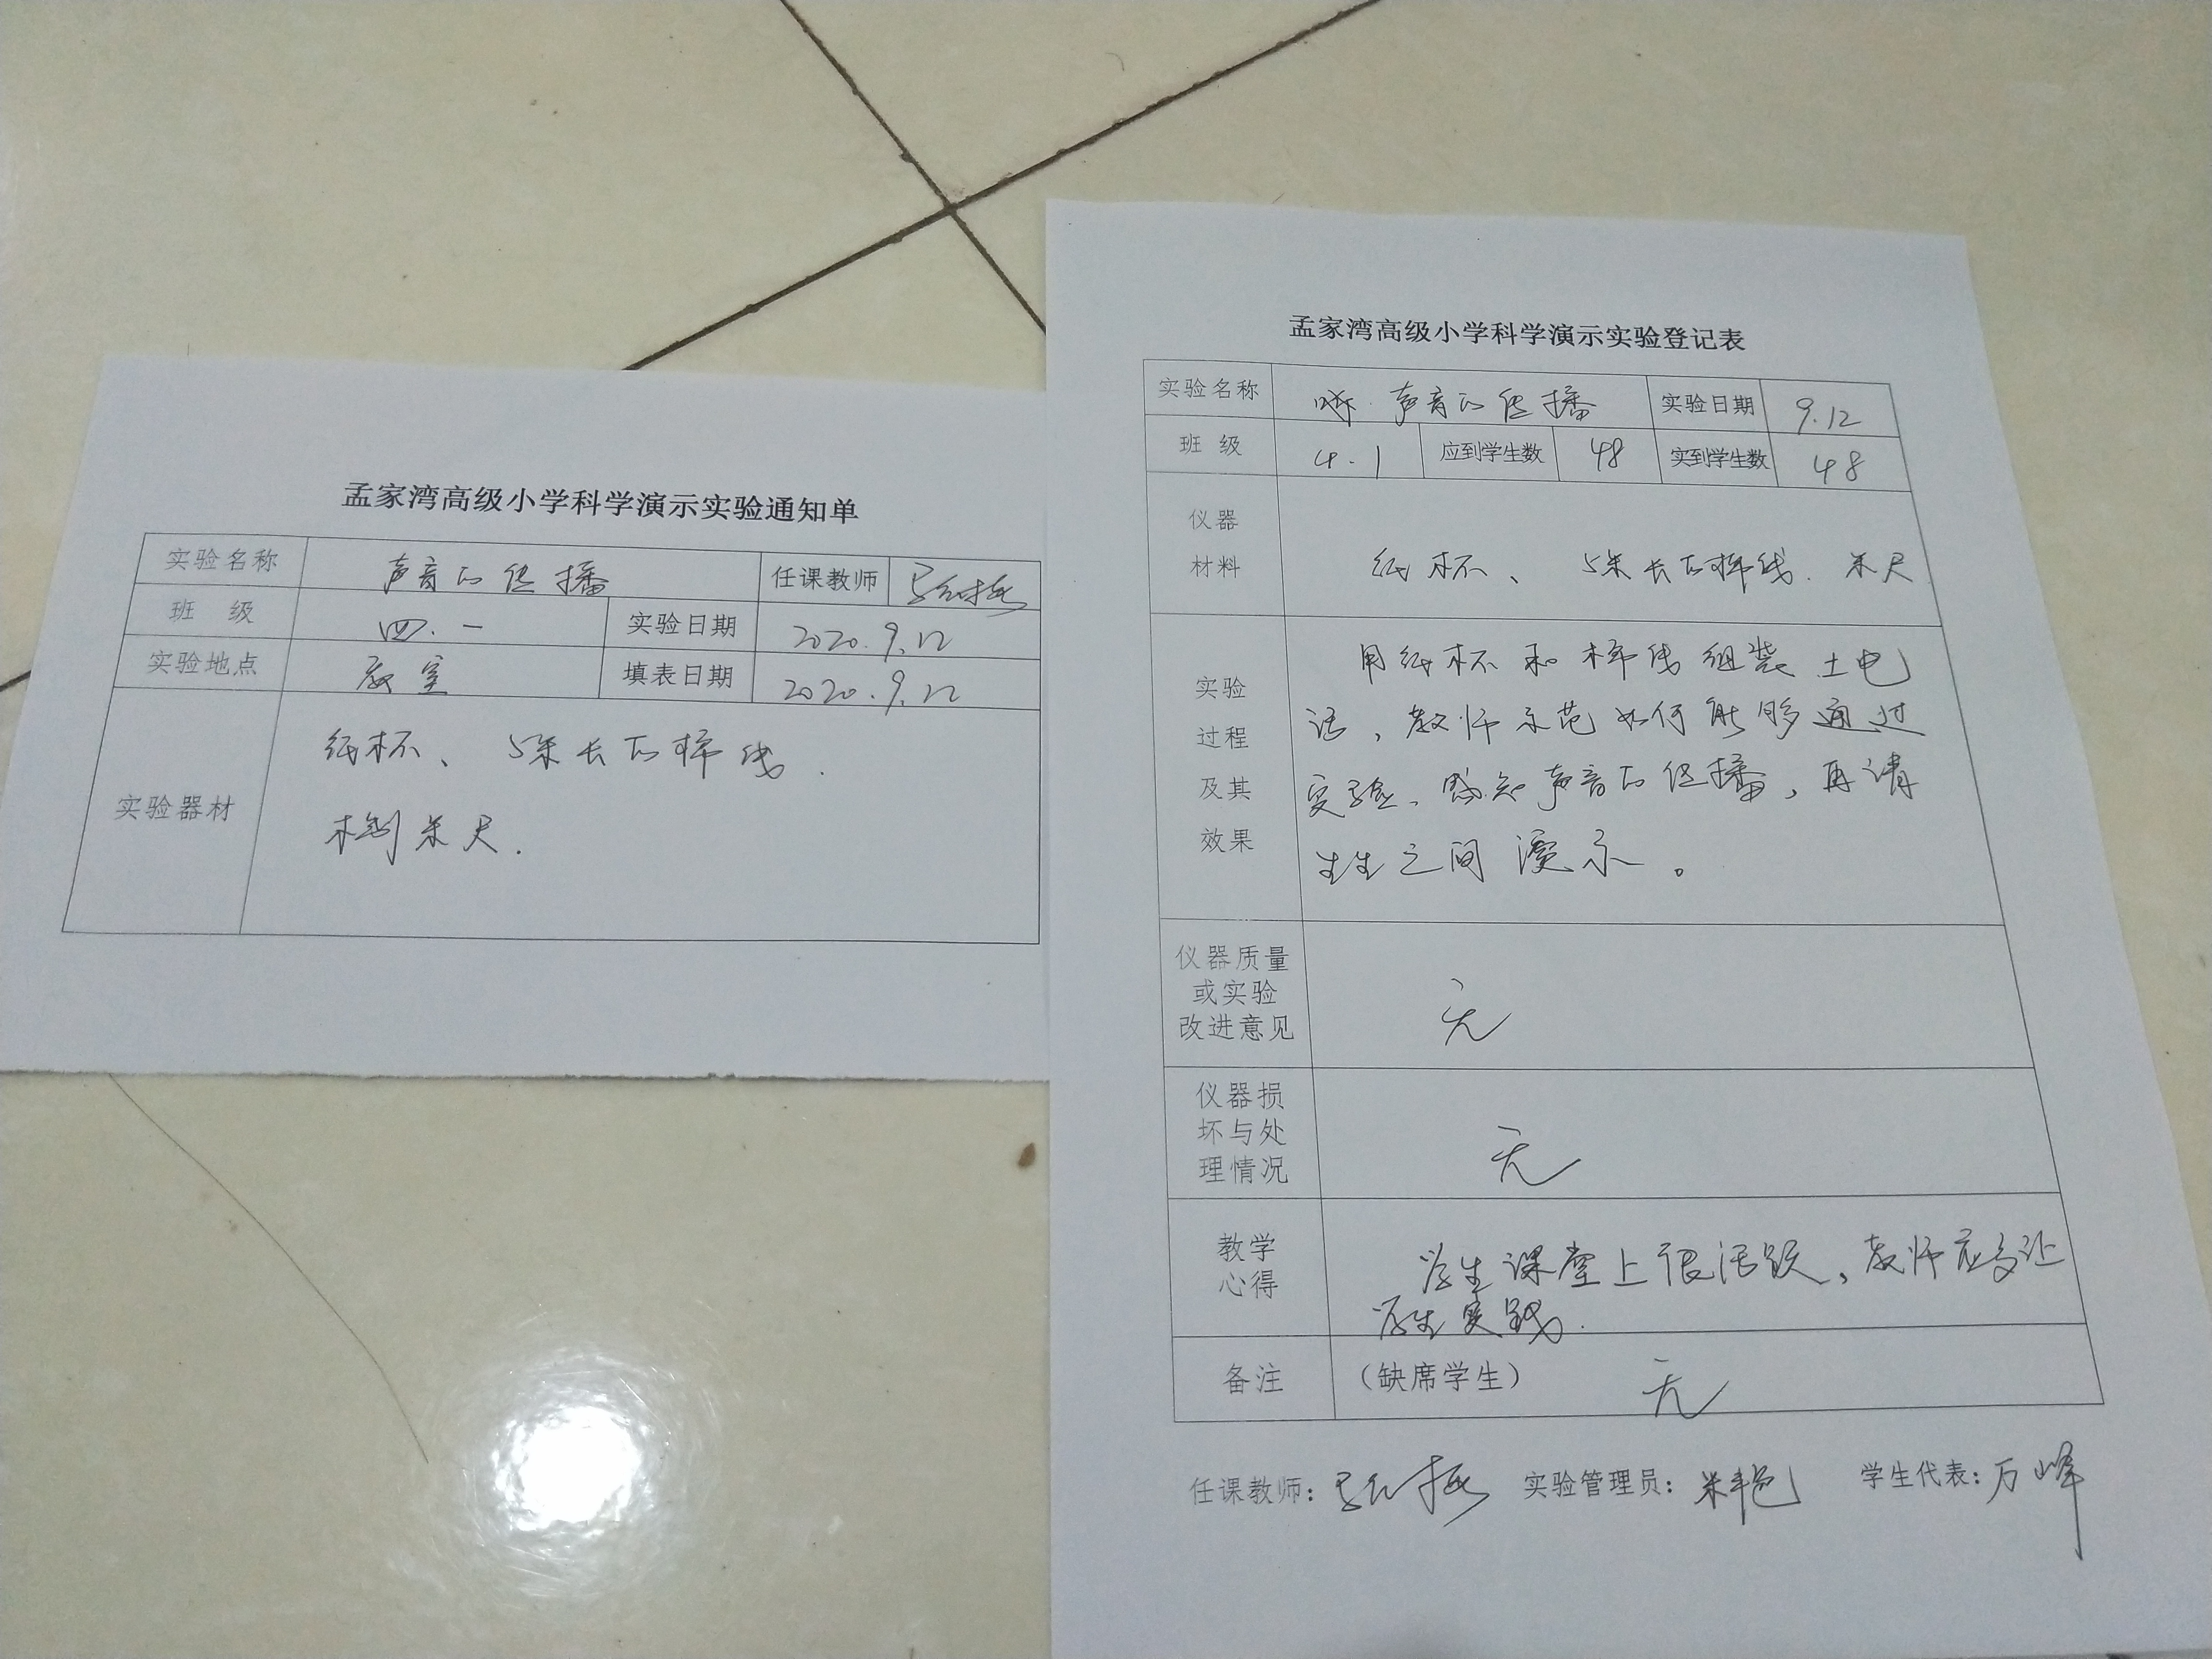 孟家湾高级小学科学演示实验通知单
实验名称 声音的传播 任课教师
班 级 四.一 实验日期 2020.9.12
实验地点 教室 填表日期 2020.9.12
实验器材
纸杯、 5米长的棉线.
木制米尺.
孟家湾高级小学科学演示实验登记表
实验名称 声音的传播 实验日期 9.12
班 级 4.1 应到学生数 48 实到学生数 48
仪器
材料
纸杯、 5米长的棉线. 米尺
实验
过程
及其
效果
用纸杯和棉线组装土电
话，教师示范如何能够通过
实验、感知声音的传播，再请
生生之间演示。
仪器质量
或实验
改进意见
无
仪器损
坏与处
理情况
无
教学
心得
学生课堂上很活跃，教师应多让
学生实践.
备注 （缺席学生） 无
任课教师： 实验管理员： 学生代表：万峰